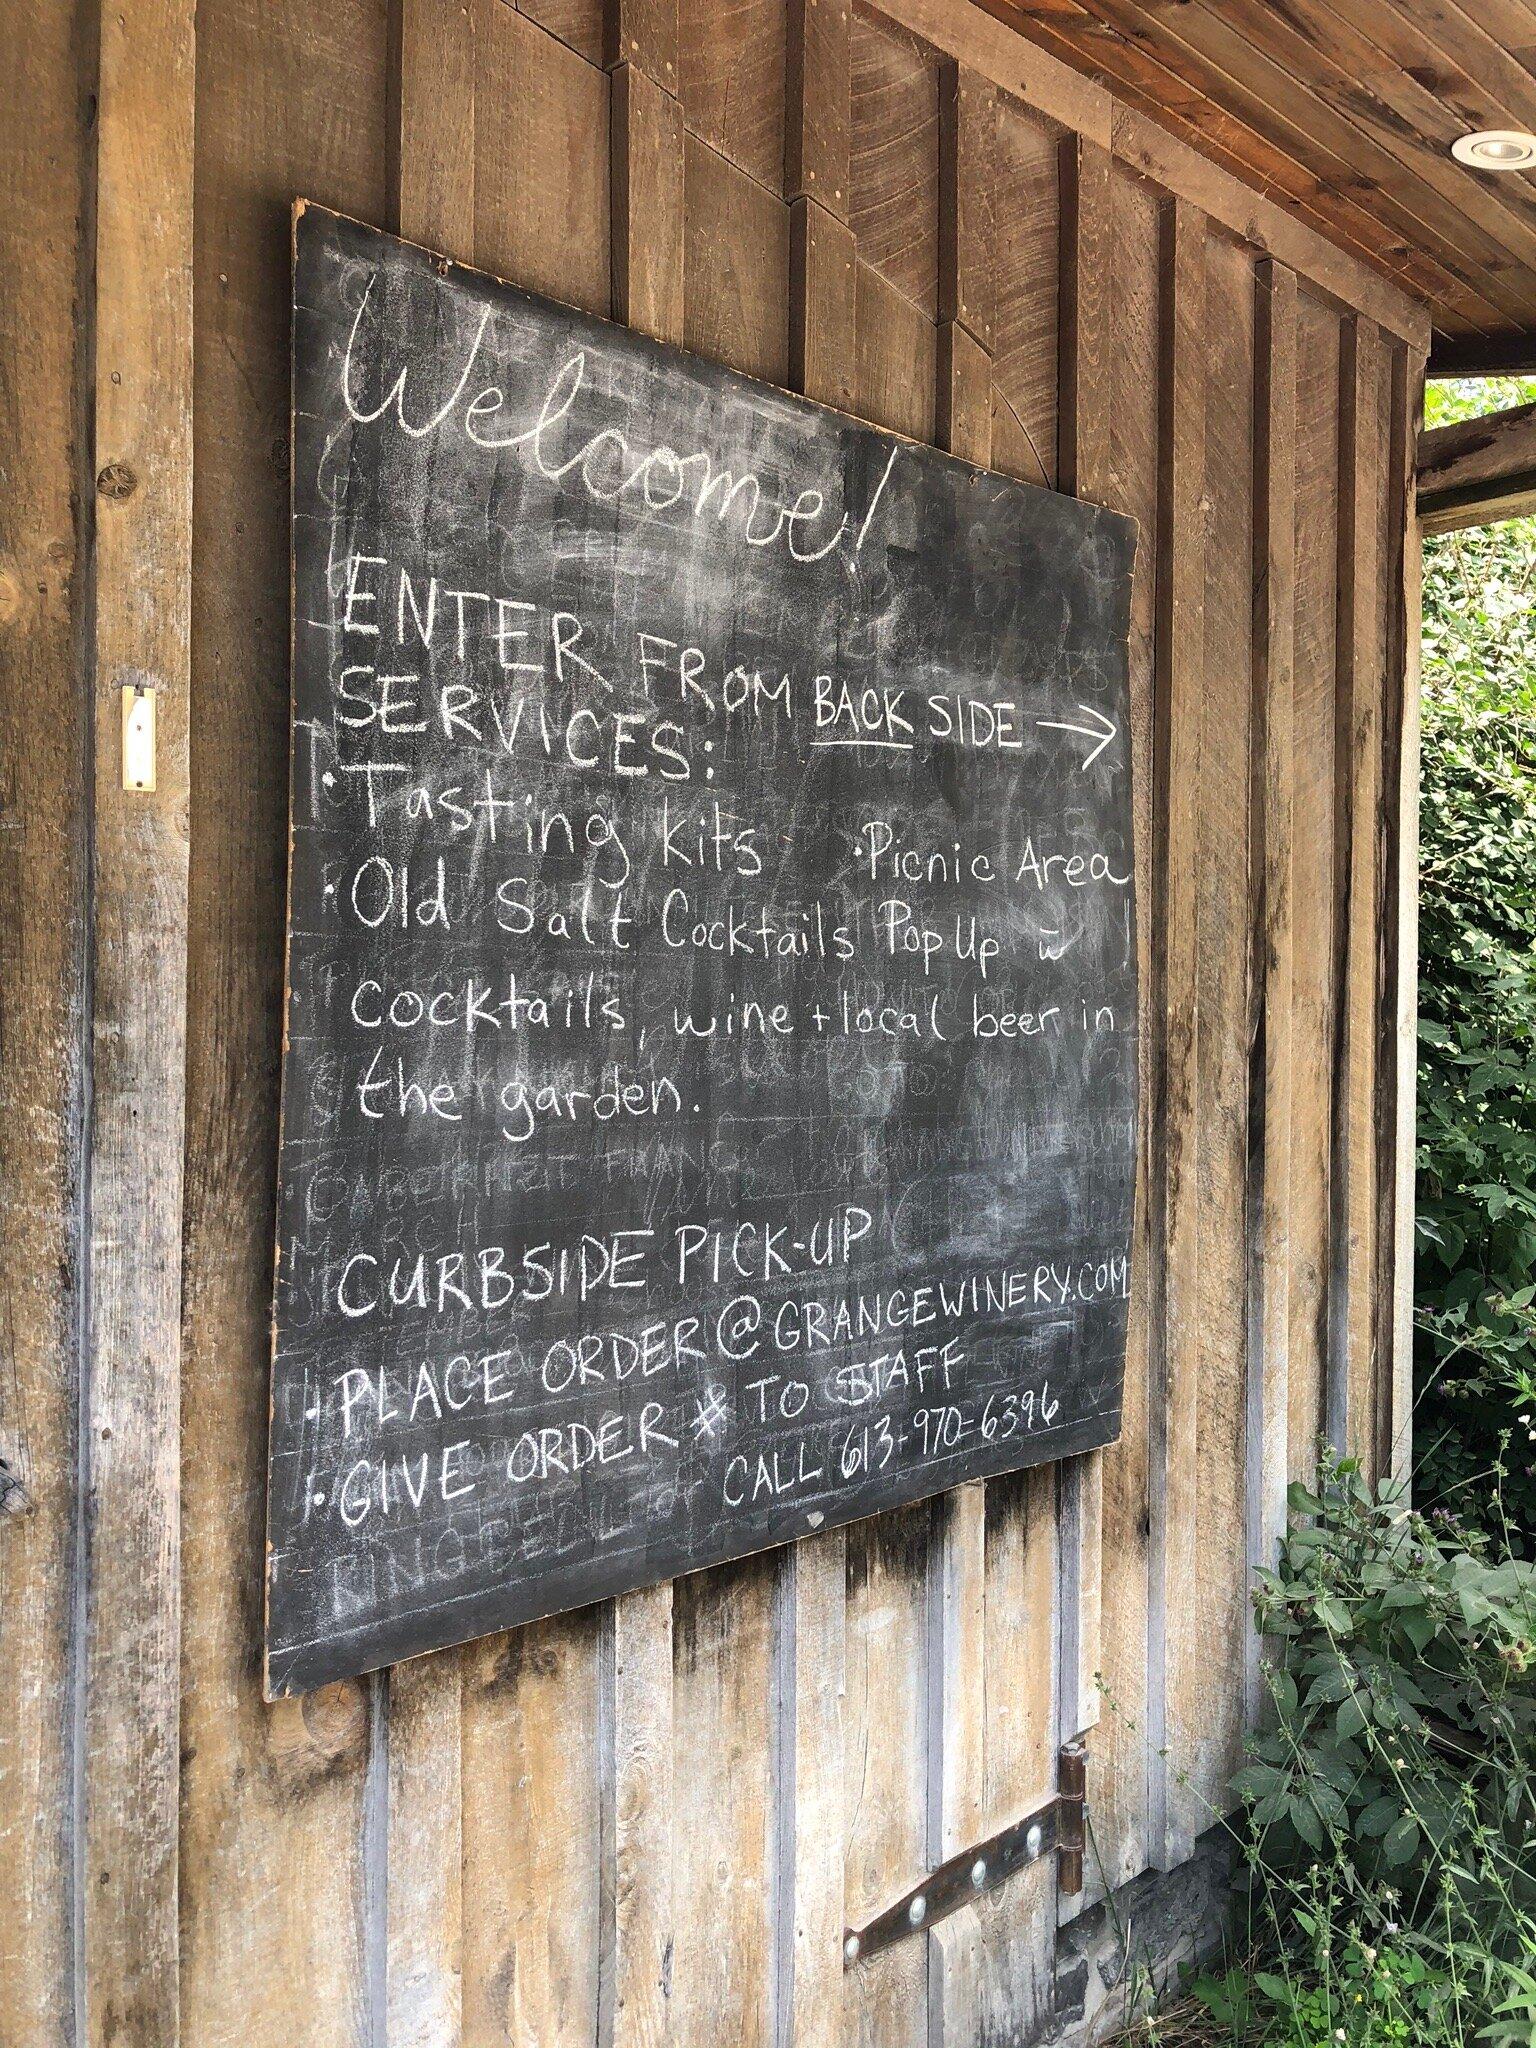 Welcome!
ENTER FROM BACK SIDE →
SERVICES:
• Tasting kits • Picnic Area
• Old Salt Cocktails Pop Up w̄
cocktails, wine + local beer in
the garden.
CURBSIDE PICK-UP
• PLACE ORDER @ GRANGEWINERY.COM
• GIVE ORDER # TO STAFF
CALL 613-970-6396